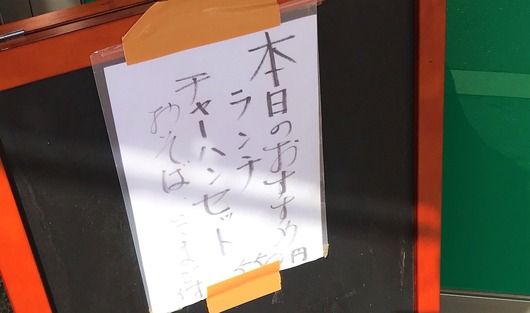 本日のおすすめ
ランチ 550円
チャーハンセット
おそば